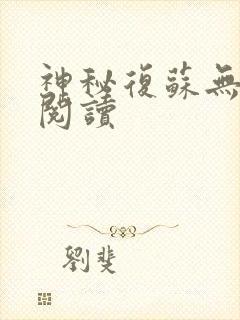 神秘復蘇無
閱讀
劉斐